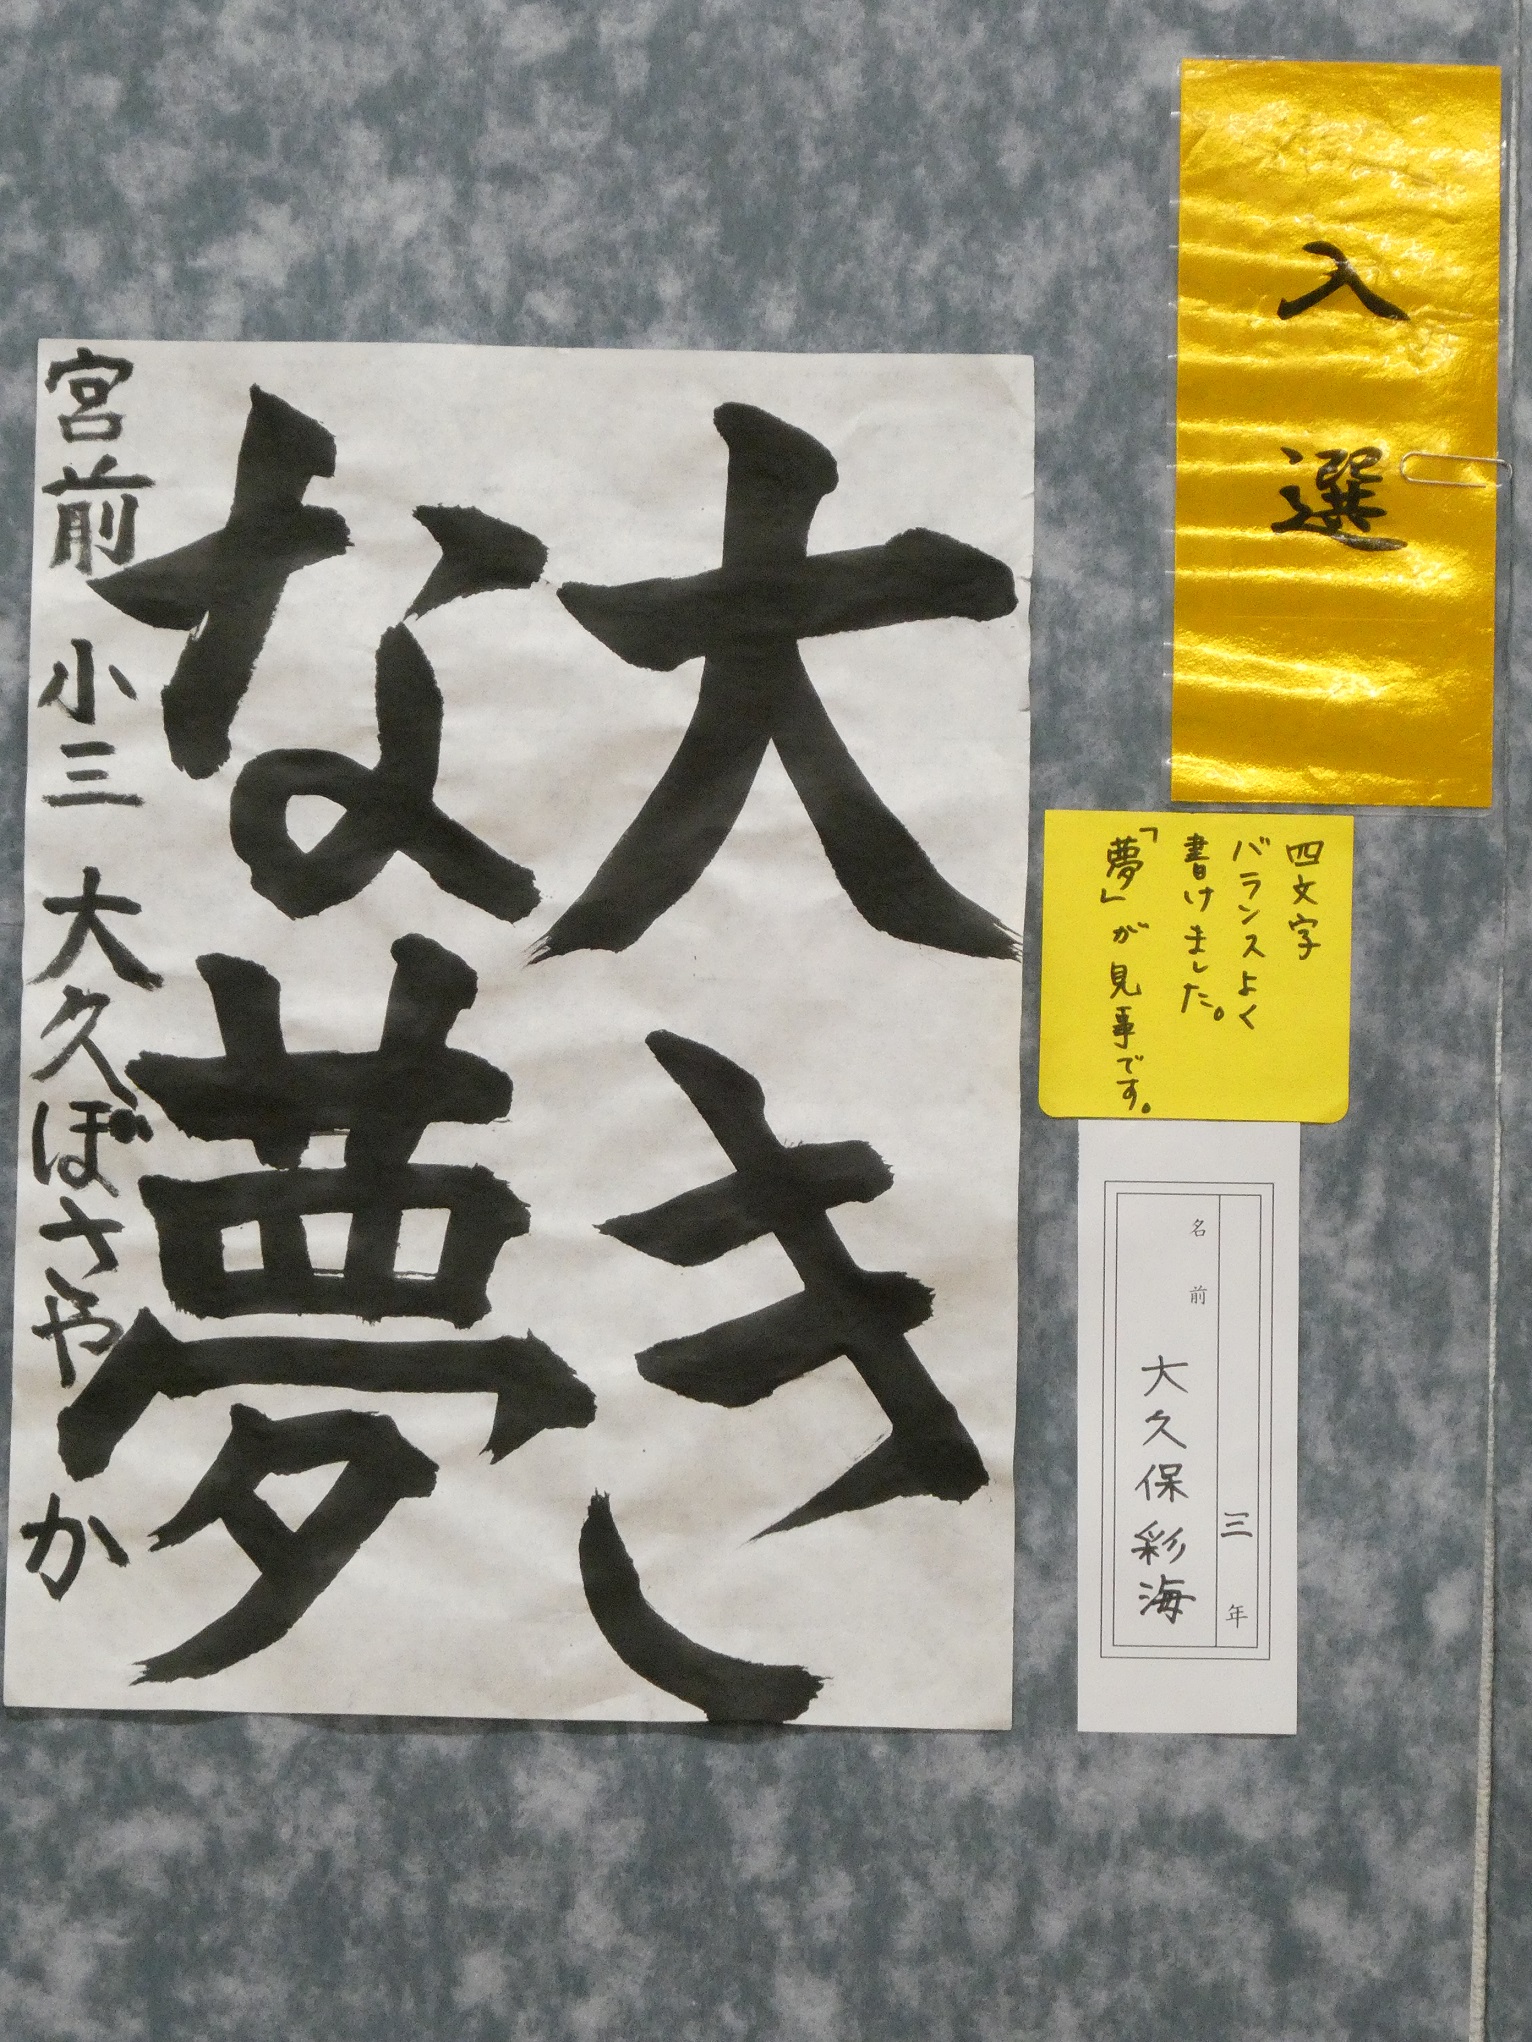 入選
四文字
バランスよく
書けました。
「夢」が見事です。
三年
名前
大久保彩海
大き
な夢
宮前小三 大久ぼさやか